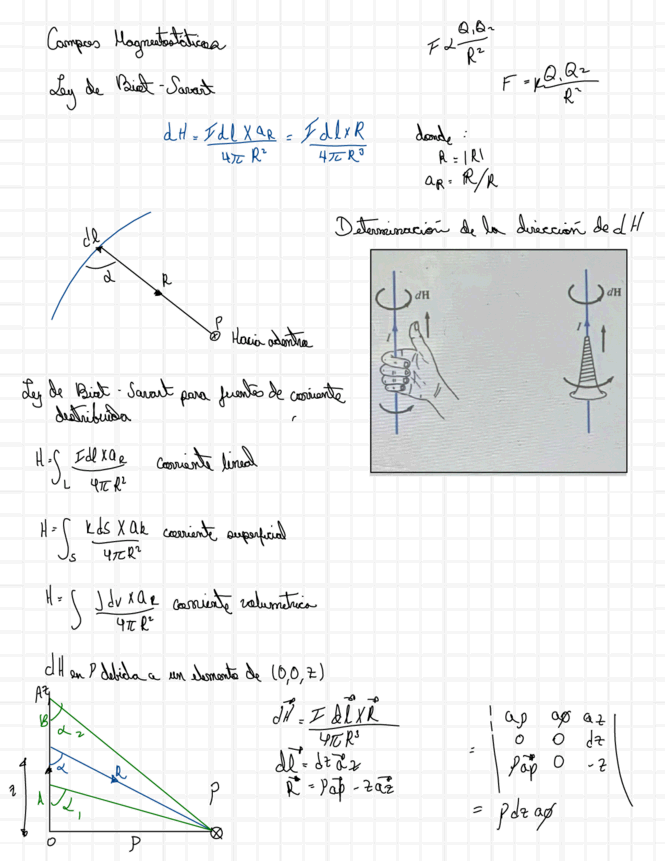 Campos Magnetostáticos
F ∝ Q₁Q₂/R²
Ley de Biot-Savart
F = k Q₁Q₂/R²
dH = I dl × a_R / 4π R² = I dl × R / 4π R³
donde :
R = |R|
a_R = R/R
Determinación de la dirección de dH
dl
α
R
P
Hacia adentro
dH
I
dH
I
Ley de Biot-Savart para fuentes de corriente
distribuida
H = ∫_L I dl × a_R / 4π R² corriente lineal
H = ∫_S k ds × a_R / 4π R² corriente superficial
H = ∫ J dv × a_R / 4π R² corriente volumetrica
dH en P debida a un elemento de (0,0,z)
Az
B
α₂
α
R
z
A
α₁
P
O
ρ
dH⃗ = I dl⃗ × R⃗ / 4π R³
dl⃗ = dz a⃗z
R⃗ = ρ a⃗ρ - z a⃗z
= | aρ aø az |
| 0 0 dz |
| ρ a⃗ρ 0 -z |
= ρ dz aø